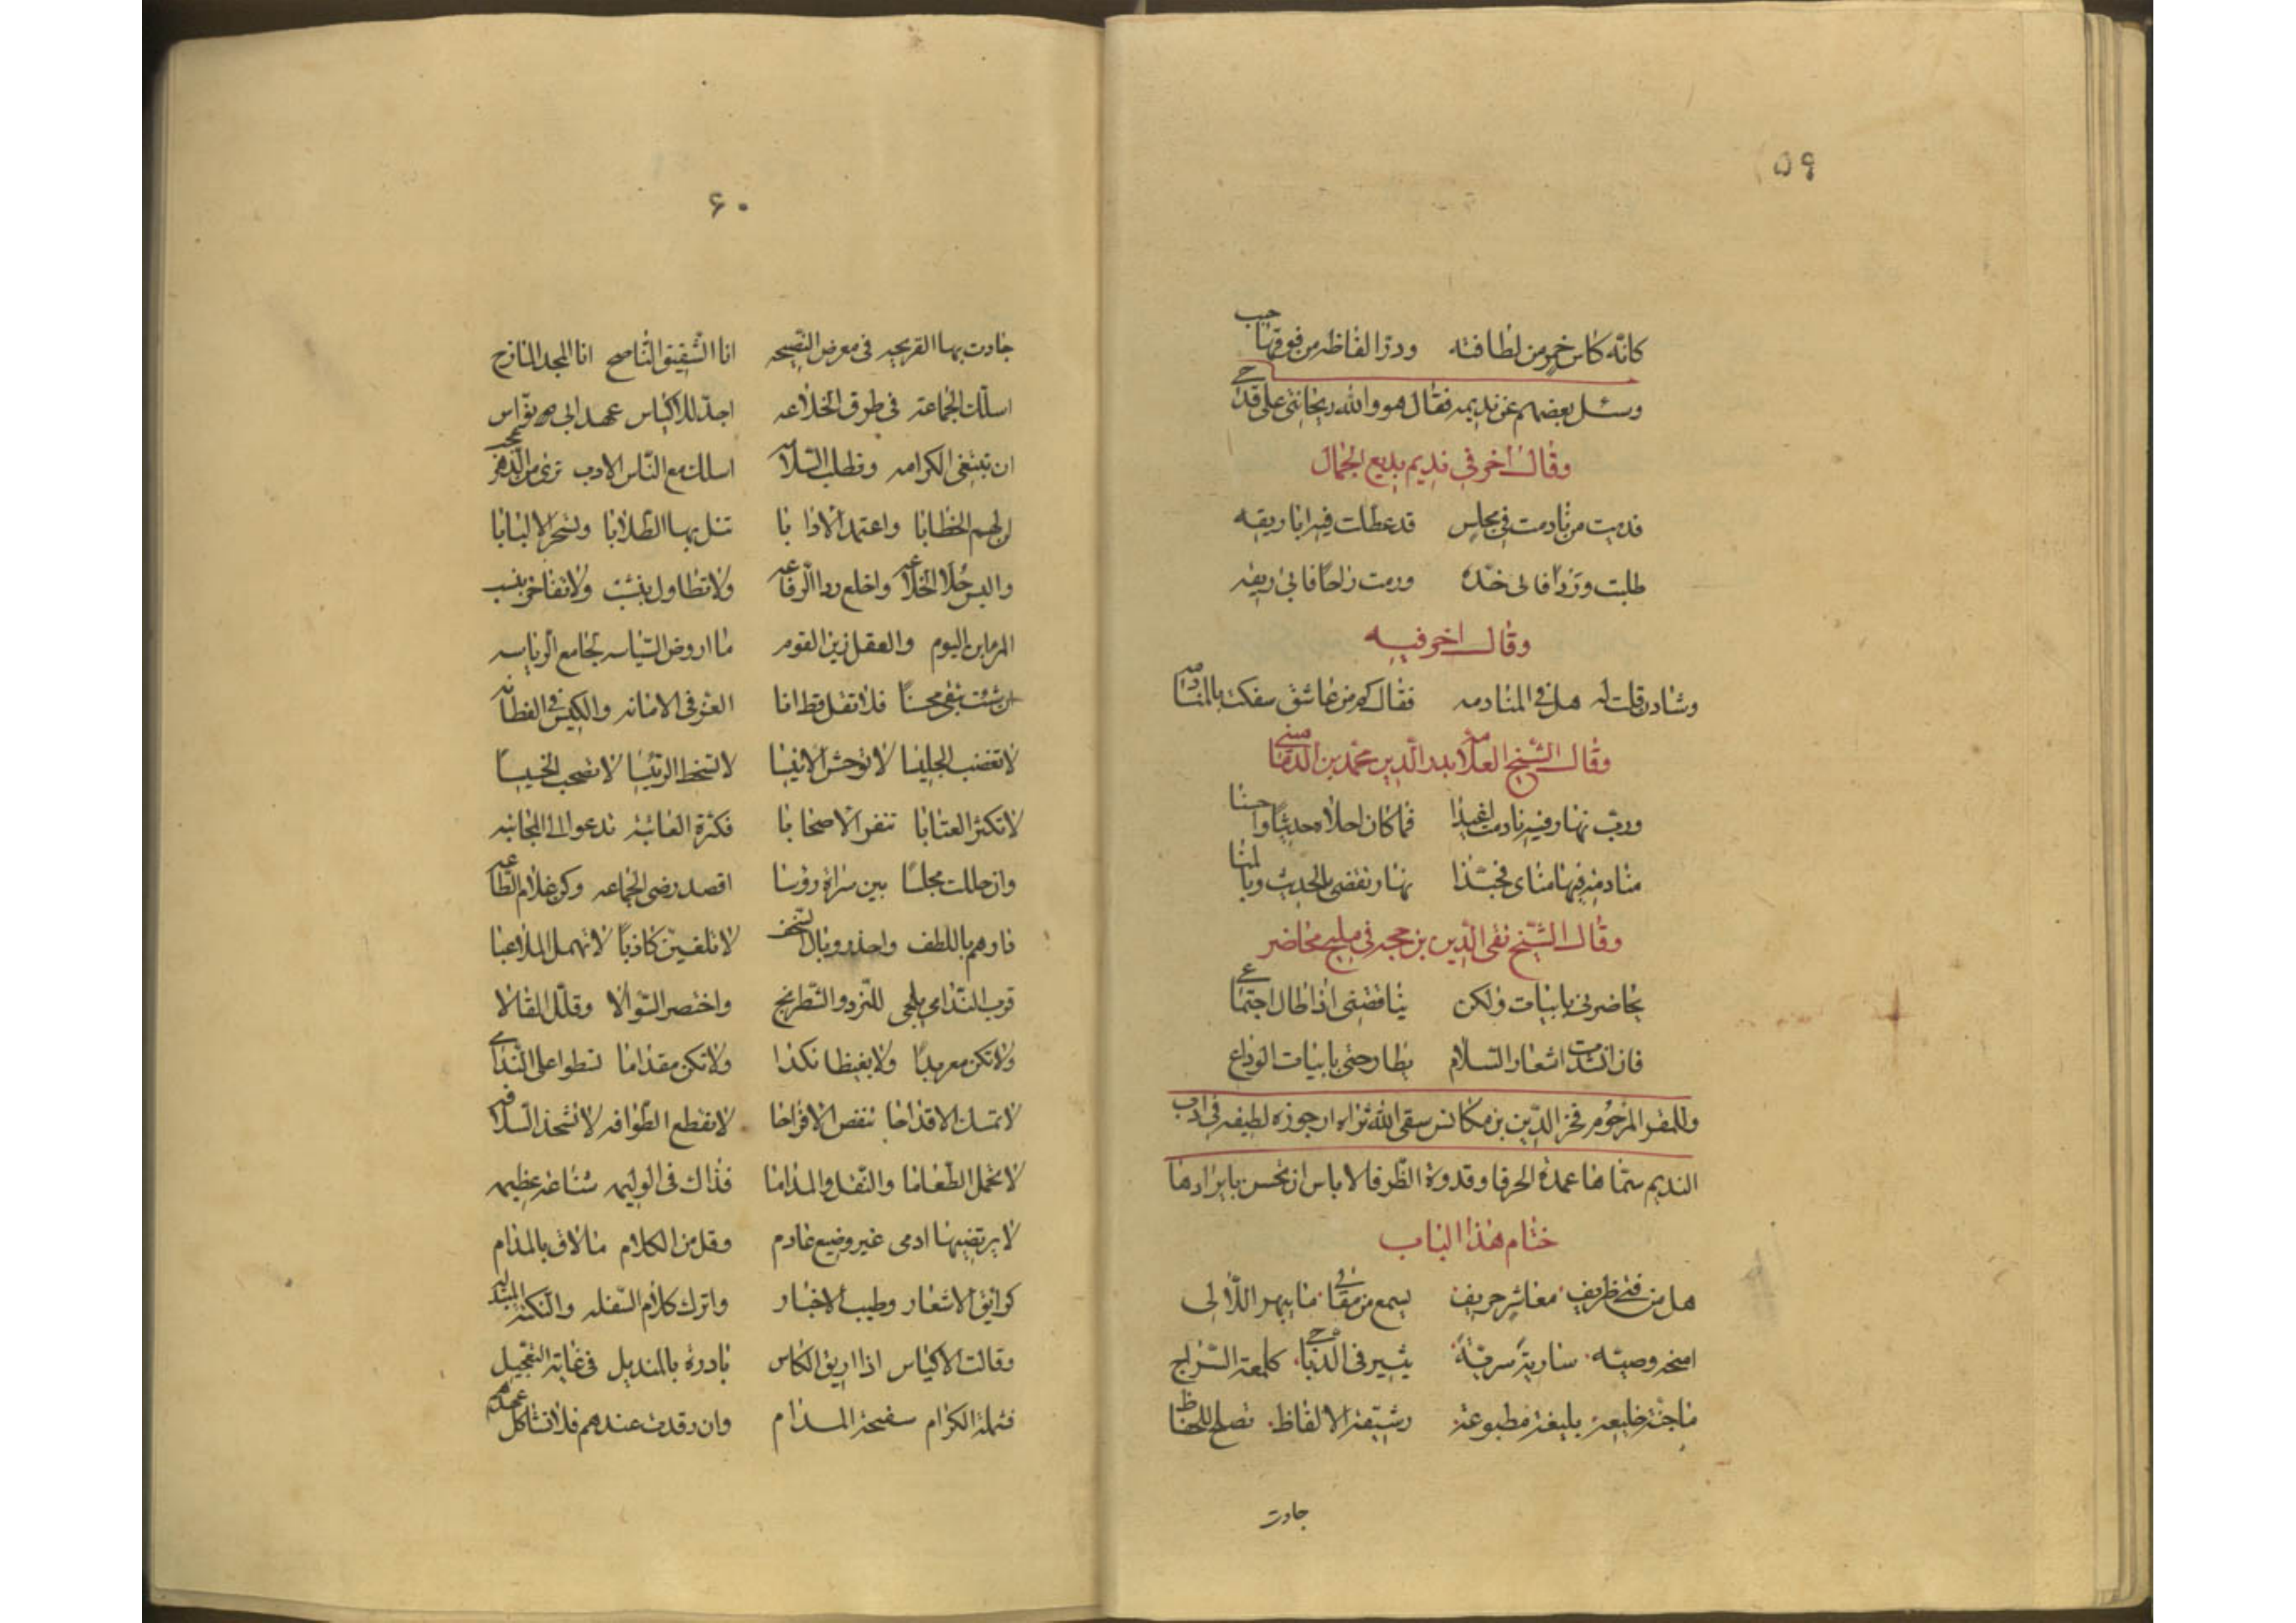 ۵۹
كانّه كاس خمر من لطافته ودرّ الفاظه من فوقها حبب
وسئل بعضهم عن نديمه فقال هو والله ريحانتى على قدحى
وقال اخر في نديم بديع الجمال
فديت من نادمت في مجلس قد عطلت فيه اباريقه
طلبت وردًا فاتى خدّه ورمت راحًا فاتى ريقه
وقال اخر فيه
وشادن قلت له هل في المنادمه فقال كم من عاشق سفكت بالمنادمه
وقال الشيخ العلامه بدر الدين محمد بن الدمامينى
ورب نهار فيه نادمت اغيدا فما كان احلاه حديثا واحسنا
منادمة فيها مناى فحبّذا نهار تقضى بالحديث وبالمنا
وقال الشيخ تقى الدين بن حجه في مليح محاضر
يحاضرنى بابيات ولكن يناقضنى اذا طال اجتماعى
فان انشدت اشعار السلام يطارحنى بابيات الوداع
وللمقر المرحوم فخر الدين بن مكانس سقى الله ثراه ارجوزه لطيفه في اداب
النديم سمّاها عمدة الحرفا وقدوة الظرفا لا باس ان نحسن بايرادها
ختام هذا الباب
هل من فتى ظريف معاشر حريف يسمع من مقالى ما يبهر اللآلى
امنحه وصيته سارية سرية تسير في الدياجى كلمعة السراج
ماجنة خليعة بليغة مطبوعة رشيقة الالفاظ تصلح للحفاظ
جادت
۶۰
جادت بها القريحه فى معرض النصيحه انا الشفيق الناصح انا المجد المازح
اسلك الجماعة فى طرق الخلاعه اجدّ للاكياس عهد ابى نوّاس
ان تبتغى الكرامه وتطلب السلامه اسلك مع الناس الادب ترى من الدهر عجب
لن لهم الخطابا واعتمد الادابا تنل بها الطلابا وتسحر الالبابا
والبس حُلَا الخلاعه واخلع ردا الرقاعه ولا تطاول بنشب ولا تفاخر بنسب
المر ابن اليوم والعقل زين القوم ما اروض السياسه لجامع الرياسه
ان شئت تبقى محسنًا فلا تقل قط انا العزّ فى الامانه والكيس فى الفطانه
لا تغضب الجليسا لا توحش الانيسا لا تسخط الرئيسا لا تصحب الخسيسا
لا تكثر العتابا تنفر الاصحابا فكثرة المعاتبه تدعو الى المجانبه
وان حللت مجلسًا بين سراة رؤسا اقصد رضى الجماعه وكن غلام الطاعه
دارهم باللطف واحذر وبال السخف لا تلفين كاذبًا لا تهمل الملاعبا
قرب الندامى يلجى للنرد والشطرنج واختصر السؤالا وقلل المقالا
ولا تكن معربدًا ولا بغيظا نكدا ولا تكن مقداما تسطوا على الندامى
لا تمسك الاقداحا تنغص الافراحا لا تقطع الطوافه لا تشحذ السلافه
لا تحمل الطعاما والنقل والمداما فذاك فى الوليمه شناعة عظيمه
لا يرتضيها ادمى غير وضيع عادم وقل من الكلام ما لاق بالمدام
كرائق الاشعار وطيب الاخبار واترك كلام السفله والنكتة المبتذله
وقالت الاكياس اذا اريق الكاس بادره بالمنديل فى غاية التعجيل
فشملة الكرام سفنجة المدام وان رقدت عندهم فلا تشاكل عبدهم